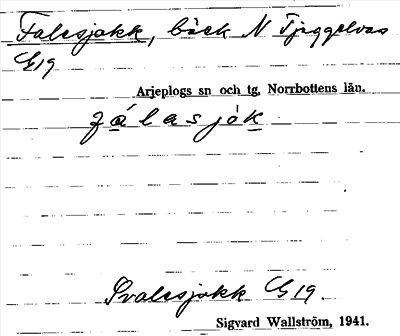 Falesjokk, bäck N Tjeggelvas
G19
Arjeplogs sn och tg, Norrbottens län.
fálasjòk
Svalesjokk G19.
Sigvard Wallström, 1941.